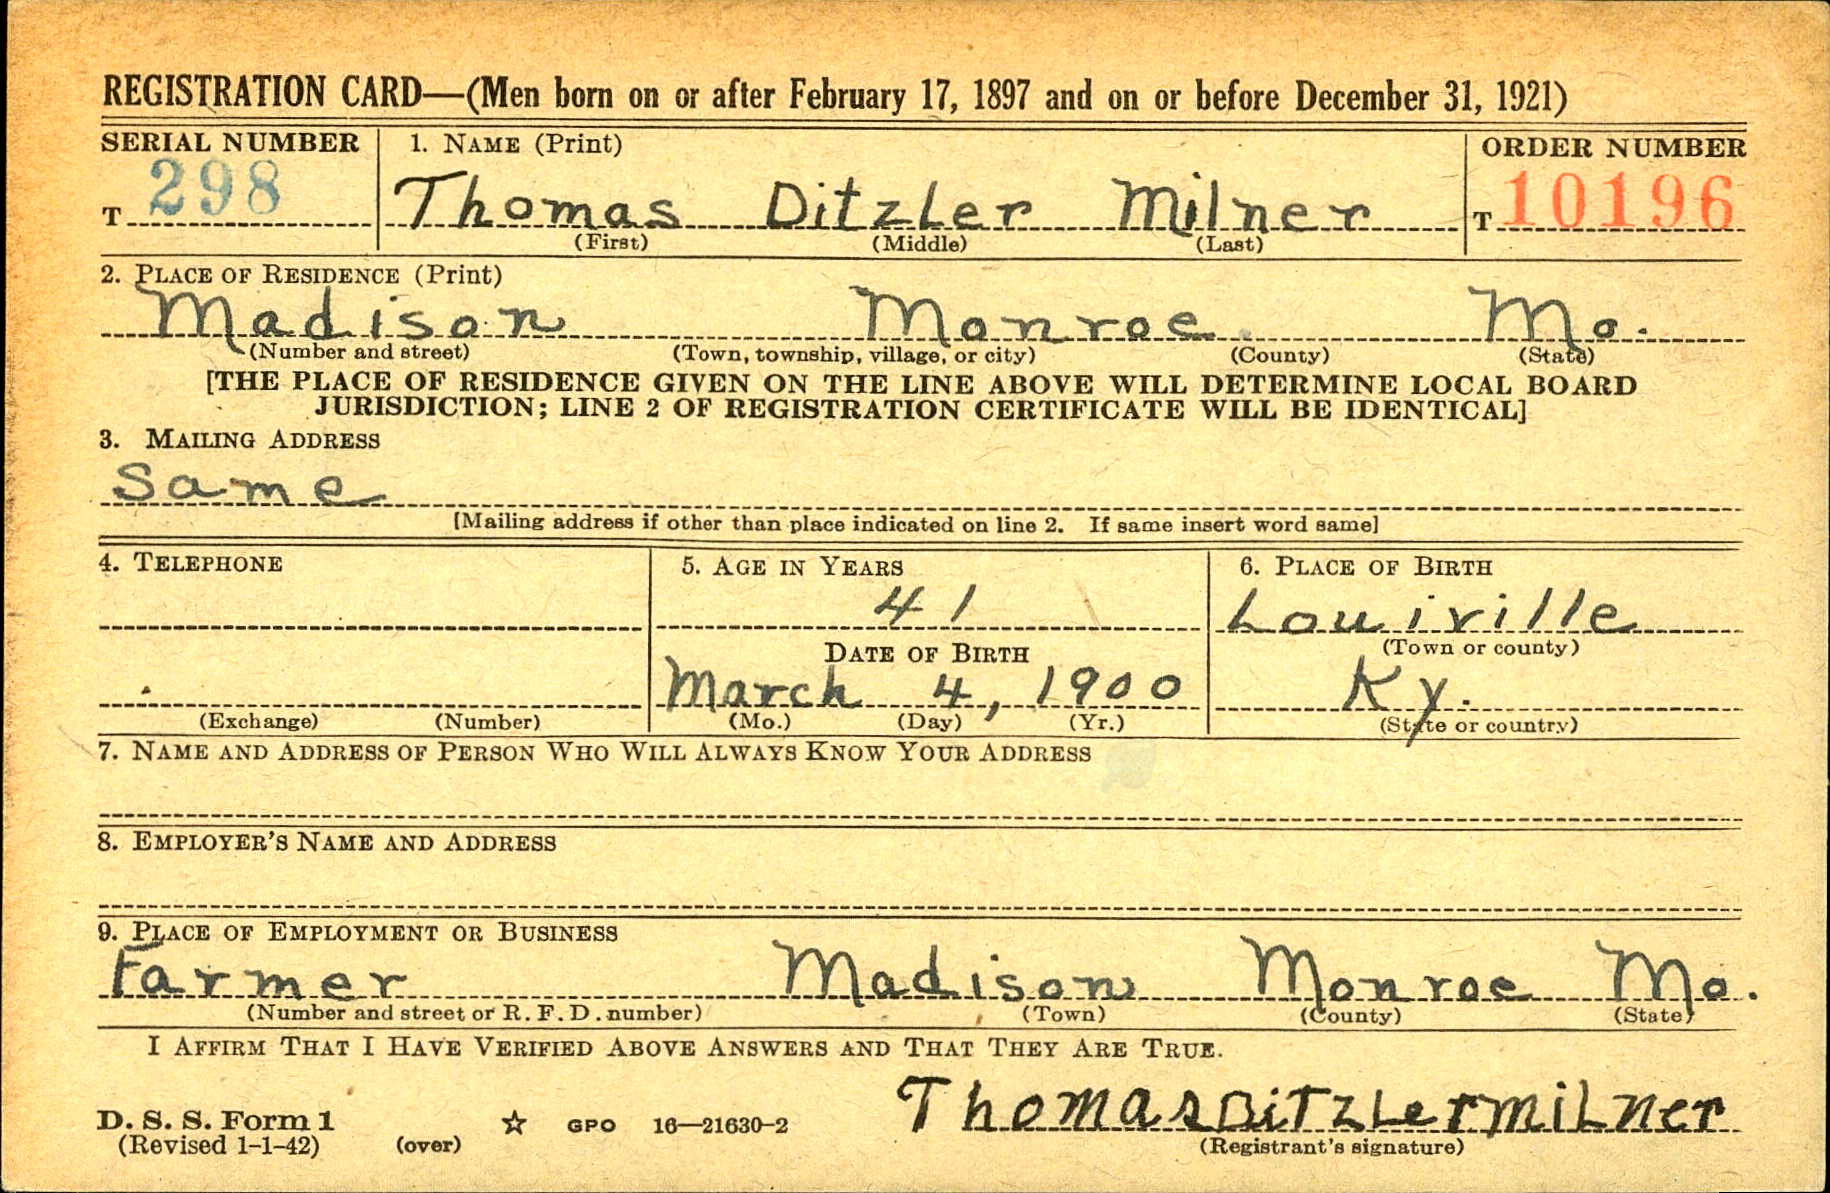 REGISTRATION CARD—(Men born on or after February 17, 1897 and on or before December 31, 1921)
SERIAL NUMBER
T 298
1. NAME (Print)
Thomas Ditzler Milner
(First) (Middle) (Last)
ORDER NUMBER
T 10196
2. PLACE OF RESIDENCE (Print)
Madison Monroe Mo.
(Number and street) (Town, township, village, or city) (County) (State)
[THE PLACE OF RESIDENCE GIVEN ON THE LINE ABOVE WILL DETERMINE LOCAL BOARD
JURISDICTION; LINE 2 OF REGISTRATION CERTIFICATE WILL BE IDENTICAL]
3. MAILING ADDRESS
Same
[Mailing address if other than place indicated on line 2. If same insert word same]
4. TELEPHONE
(Exchange) (Number)
5. AGE IN YEARS
41
DATE OF BIRTH
March 4, 1900
(Mo.) (Day) (Yr.)
6. PLACE OF BIRTH
Louirville
(Town or county)
Ky.
(State or country)
7. NAME AND ADDRESS OF PERSON WHO WILL ALWAYS KNOW YOUR ADDRESS
8. EMPLOYER'S NAME AND ADDRESS
9. PLACE OF EMPLOYMENT OR BUSINESS
Farmer Madison Monroe Mo.
(Number and street or R. F. D. number) (Town) (County) (State)
I AFFIRM THAT I HAVE VERIFIED ABOVE ANSWERS AND THAT THEY ARE TRUE.
Thomas Ditzler Milner
(Registrant's signature)
D. S. S. Form 1
(Revised 1-1-42) (over) ☆ GPO 16—21630-2